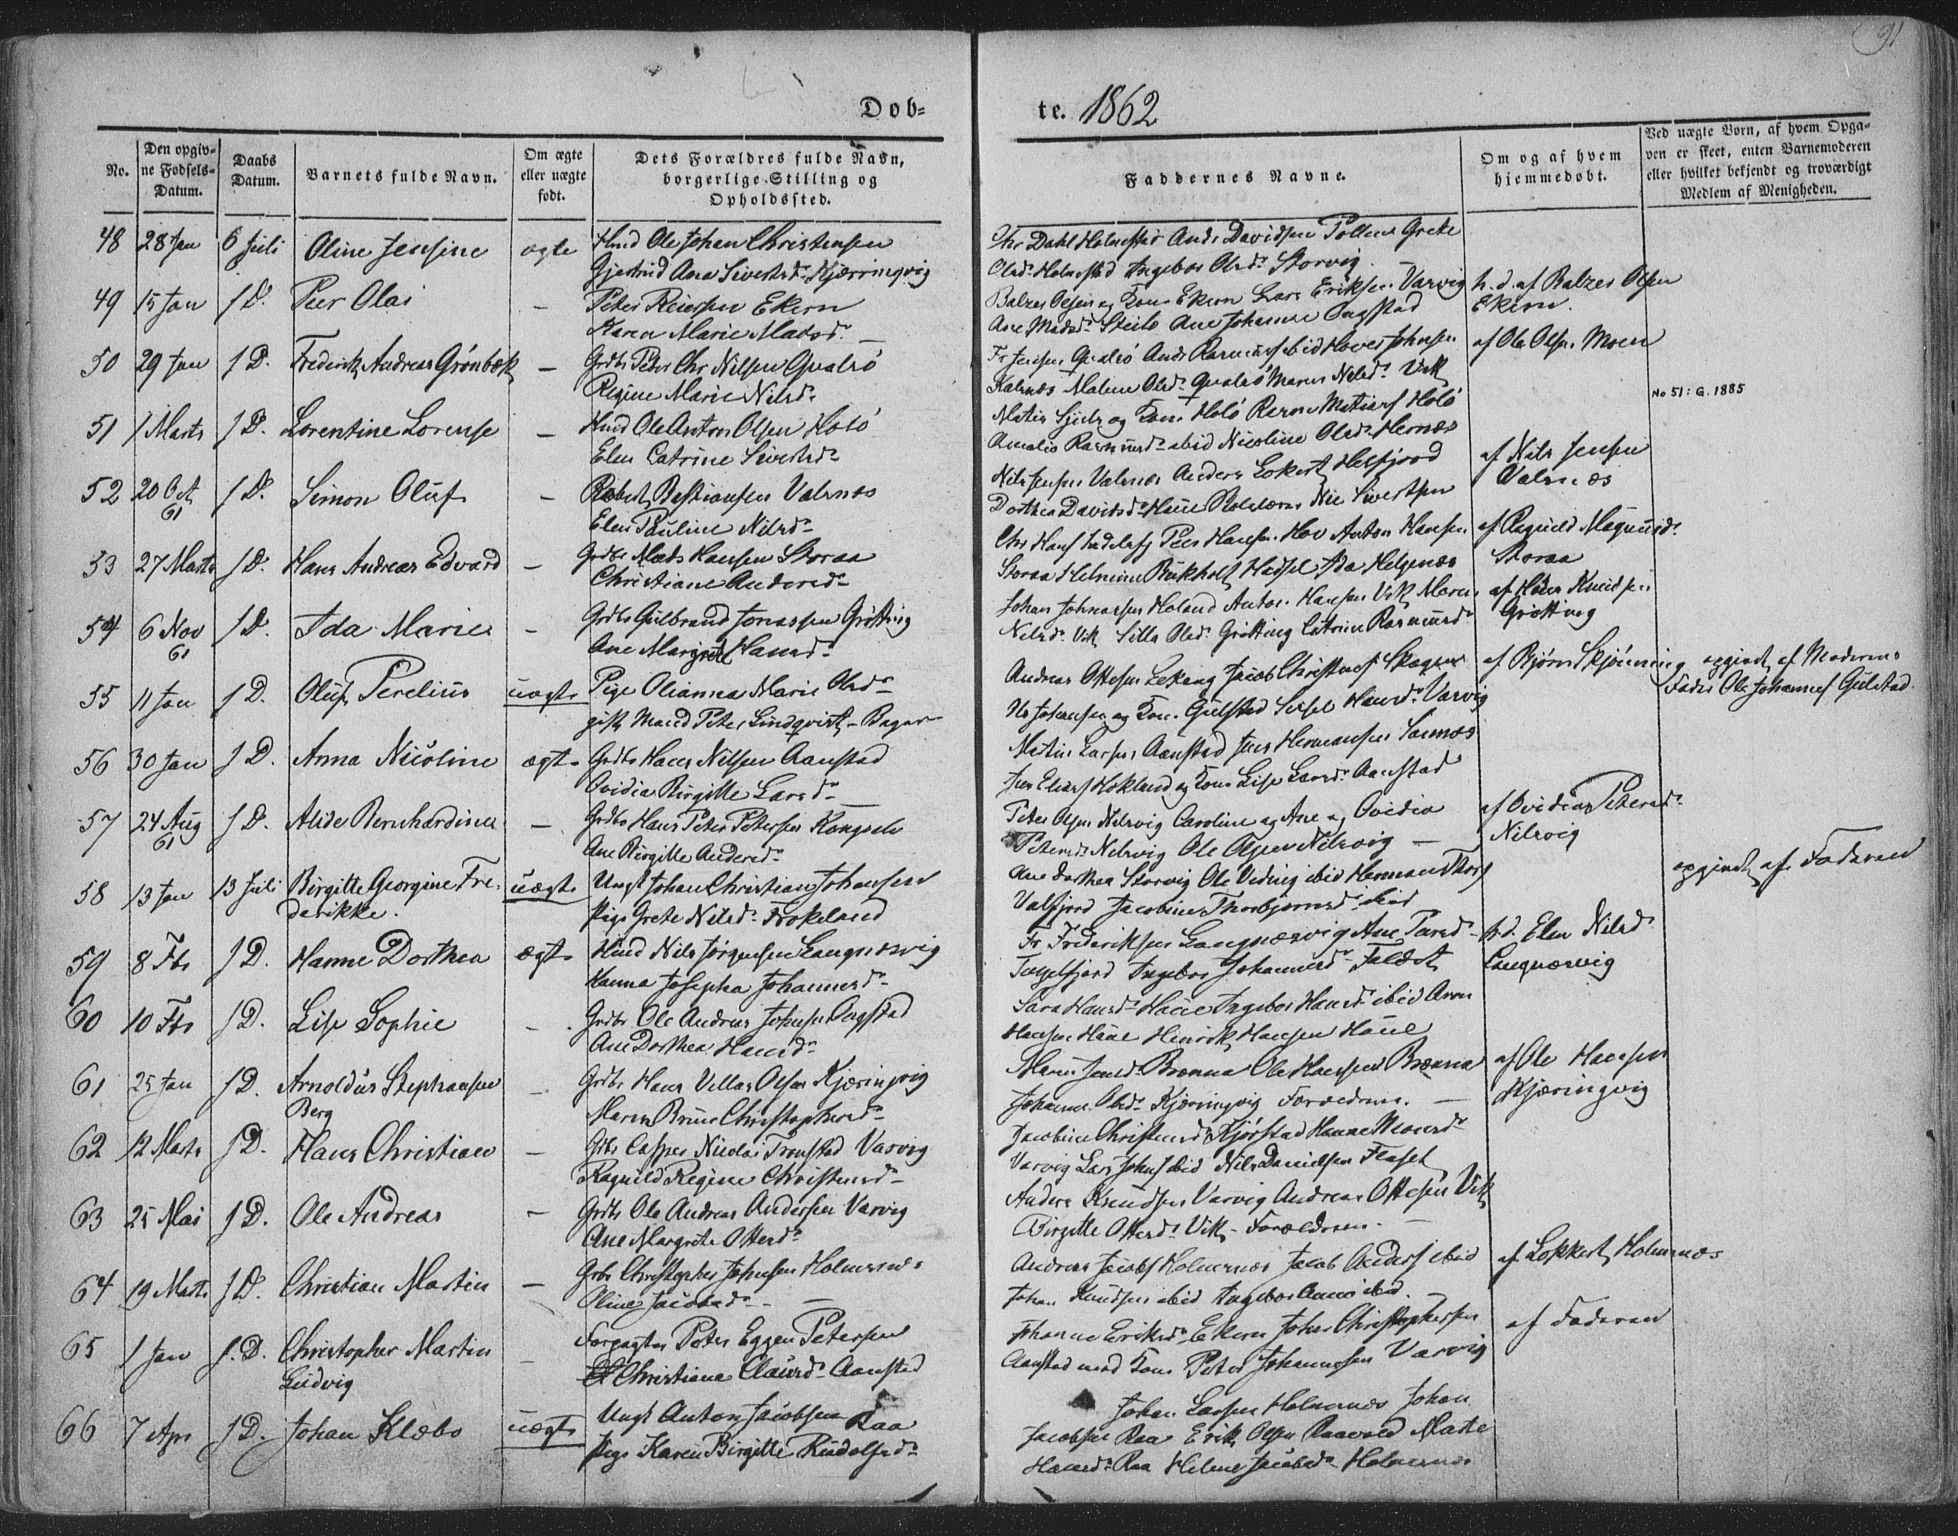 91
Døb-
te. 1862
No.
Den opgiv-
ne Fødsels-
Datum.
Daabs
Datum.
Barnets fulde Navn.
Om ægte
eller uægte
født.
Dets Forældres fulde Navn,
borgerlige Stilling og
Opholdssted.
Faddernes Navne.
Om og af hvem
hjemmedøbt.
Ved uægte Børn, af hvem Opga-
ven er skeet, enten Barnemoderen
eller hvilket bekjendt og troværdigt
Medlem af Menigheden.
48 28 Jan 6 Juli Oline Jensine ægte Huusd Ole Johan Christensen
Ane Sivertsd. Kjæringvig
Chr Dahl Holmstad Ands Davidsen Pollen Grete
Olsd. Holmstad Ingebor Olsd. Storvig
49 15 Jan J D. Peer Olai — Peter Reiersen Ekern
Karen Marie Madsd.
Balzer Olsen og Kone Ekern Lars Eriksen Varvig
Ane Madsd. Steilo Ane Johanna Ongstad
h. d. af Balzer Olsen
Ekern.
50 29 Jan J D. Frederik Andreas Grønbæk — Grdbr Peter Chr Nilsen Qualsö
Regine Marie Nilsd.
Fr Jensen Qualsö Ands Rasmus ibid Hover Johnsen
Kalsnæs Malene Olsd. Qualsö Maren Nilsd. Vik
af Ole Olsen Moen
51 1 Marts J D. Lorentine Lorense — Huusd Ole Anton Olsen Holö
Elen Catrine Sivertsd.
og Kone Holö Matiass Holö
Amalie Rasmusd. ibid Nicoline Olsd. Hernæs
No 51: G. 1885
52 20 Oct J D. Simon Oluf — Robert Bastiansen Valsnæs
61
Elen Pauline Nilsd.
Nils Jensen Valsnæs Anders Eckert Helfjord
Dorthea Davidsd. Haue Sivertsen
af Nils Jensen
Valsnæs
53 27 Marts J D. Hans Andreas Edvard — Grdbr Mads Hansen Storaa
Christiane Andersd.
Peer Hansen Hov Anton Hansen
Storaa Helmine Bukholt Hadsel Ida Helgenæs
af Ragnild Magnusd.
Storaa
54 6 Nov J D. Ida Marie — Grdbr Gulbrand Jonassen Grötting
61
Ane Margrete Hansd.
Johan Johnassen Holand Anton Hansen Vik Maren
Nilsd. Vik Sille Olsd. Grötting Catrine Rasmusd.
af Hans Knudsen
Grötting
55 11 Jan J D. Oluf Perelius uægte Pige Olianna Marie Olsd.
gift Mand Peter Lindqvist
Andreas Ottesen Lekang Jacob Christens Skagen
Ole Johansen og Kone Gulstad Sissel Hansd. Varvig
af Bjørn Skjønning
opgivet af Moderen
Fader Ole Johannes Gulstad
56 30 Jan J D. Anna Nicoline ægte Grdbr Hans Nilsen Aanstad
Ovidia Birgitte Larsd.
Martin Larsen Aanstad Jens Hermansen Sannæs
Jens Elias Hokland og Kone Lise Larsd. Aanstad
57 24 Aug J D. Alide Bernhardine — Grdbr Hans Peter Petersen
61
Ane Birgitte Andersd.
Peter Olsen Nilsvig Caroline og Ane og Ovidia
Petersd. Nilsvig Ole Nilsvig
af Ovidia Petersd.
Nilsvig
58 13 Jan 13 Juli Birgitte Georgine Fre-
derikke.
uægte Ungk Johan Christian Johansen
Pige Grete Nilsd. Frokeland
Ane Dorthea Storvig Ole Viding ibid Herman Thor
Valfjord Jacobine Thorbjørnsd. ibid
opgivet af Faderen
59 8 Fbr J D. Hanne Dorthea ægte Huusd Nils Jørgensen Langnæsvig
Hanna Josepha Johannesd.
Fr Frederiksen Langnæsvig Ane Parsd.
Ingelfjord Ingebor Johannesd.
h. d. Elen Nilsd.
Langnæsvig
60 10 Fbr J D. Lise Sophie — Grdbr Ole Andreas Johnsen Ongstad
Ane Dorthea Hansd.
Sara Hansd. Haue Ingebor Hansd. ibid Aron
Hansen Haue Henrik Hansen Haue
61 25 Jan J D. Arnoldus Stephansen
Berg
— Grdbr Hans Villas Olsen Kjæringvig
Maren Bruun Christophersd.
Maren Jensd. Brenna Ole Hansen Brenna
Johanna Olsd. Kjæringvig Forældrene.
af Ole Hansen
Kjæringvig
62 12 Marts J D. Hans Christian — Grdbr Casper Nicolai Tronstad Varvig
Ragnild Regine Christensd.
Jacobine Christensd. Kjørstad Hanna Monsd.
Varvig Lars Johns ibid Nils Danielsen Flaset
63 25 Mai J D. Ole Andreas — Grdbr Ole Andreas Andersen Varvig
Ane Margrete Ottesd.
Anders Knudsen Varvig Andreas Ottesen Vik
Birgitte Ottesd. Vik Forældrene.
64 19 Marts J D. Christian Martin — Grdbr Christopher Johnsen Holmsnæs
Oline Jacobsd.
Andreas Jacobs Holmsnæs Jacob Anders ibid
Johan Knudsen ibid Ingebor ibid
af Lokkert Holmsnæs
65 1 Jan J. D. Christopher Martin
Ludvig
— Forpagter Peter Eggen Petersen
Christiana Clausd. Aanstad
Johanna Eriksd. Ekern Johan Christophersen
Aanstad med Kone Peter Johannesen Varvig
af Faderen
66 7 Apr J D. Johan Klæbo uægte Ungk Anton Jacobsen Raa
Pige Karen Birgitte Rudolfsd.
Johan Larsen Holmsnæs Johan
Jacobsen Raa Erik Olsen Raavold Marte
Hansd. Raa Helene Jacobsd. Holmsnæs